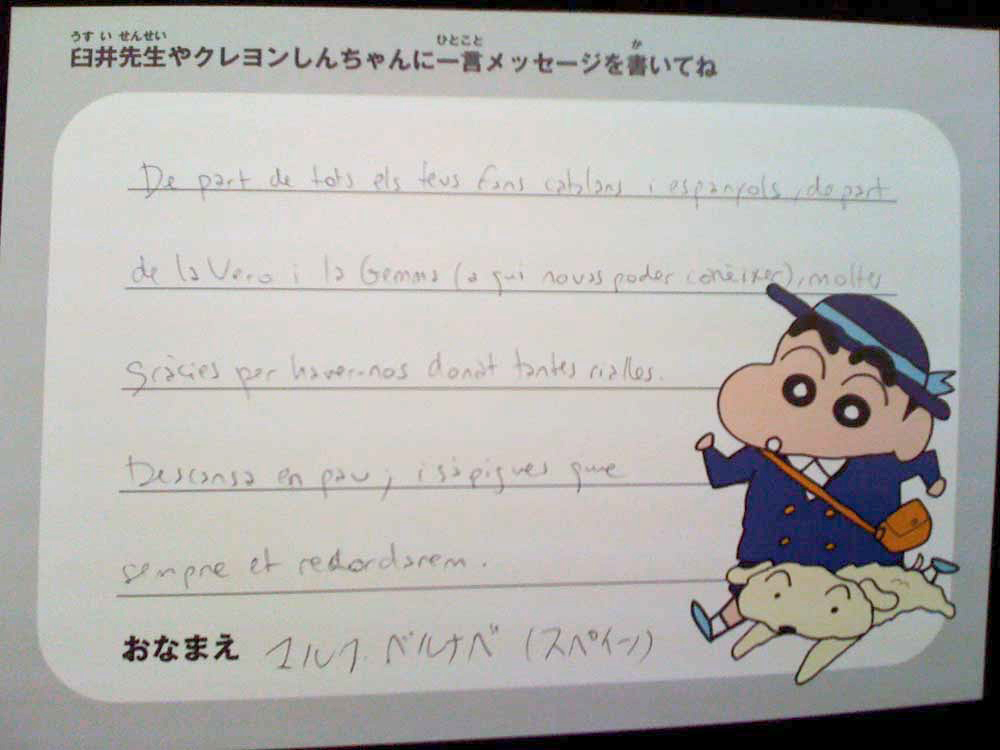 うすいせんせい ひとこと か
臼井先生やクレヨンしんちゃんに一言メッセージを書いてね
De part de tots els teus fans catalans i espanyols, de part
de la Vero i la Gemma (a qui no vas poder conèixer), moltes
gràcies per haver-nos donat tantes rialles.
Descansa en pau, i sàpigues que
sempre et recordarem.
おなまえ マルク ベルナベ (スペイン)